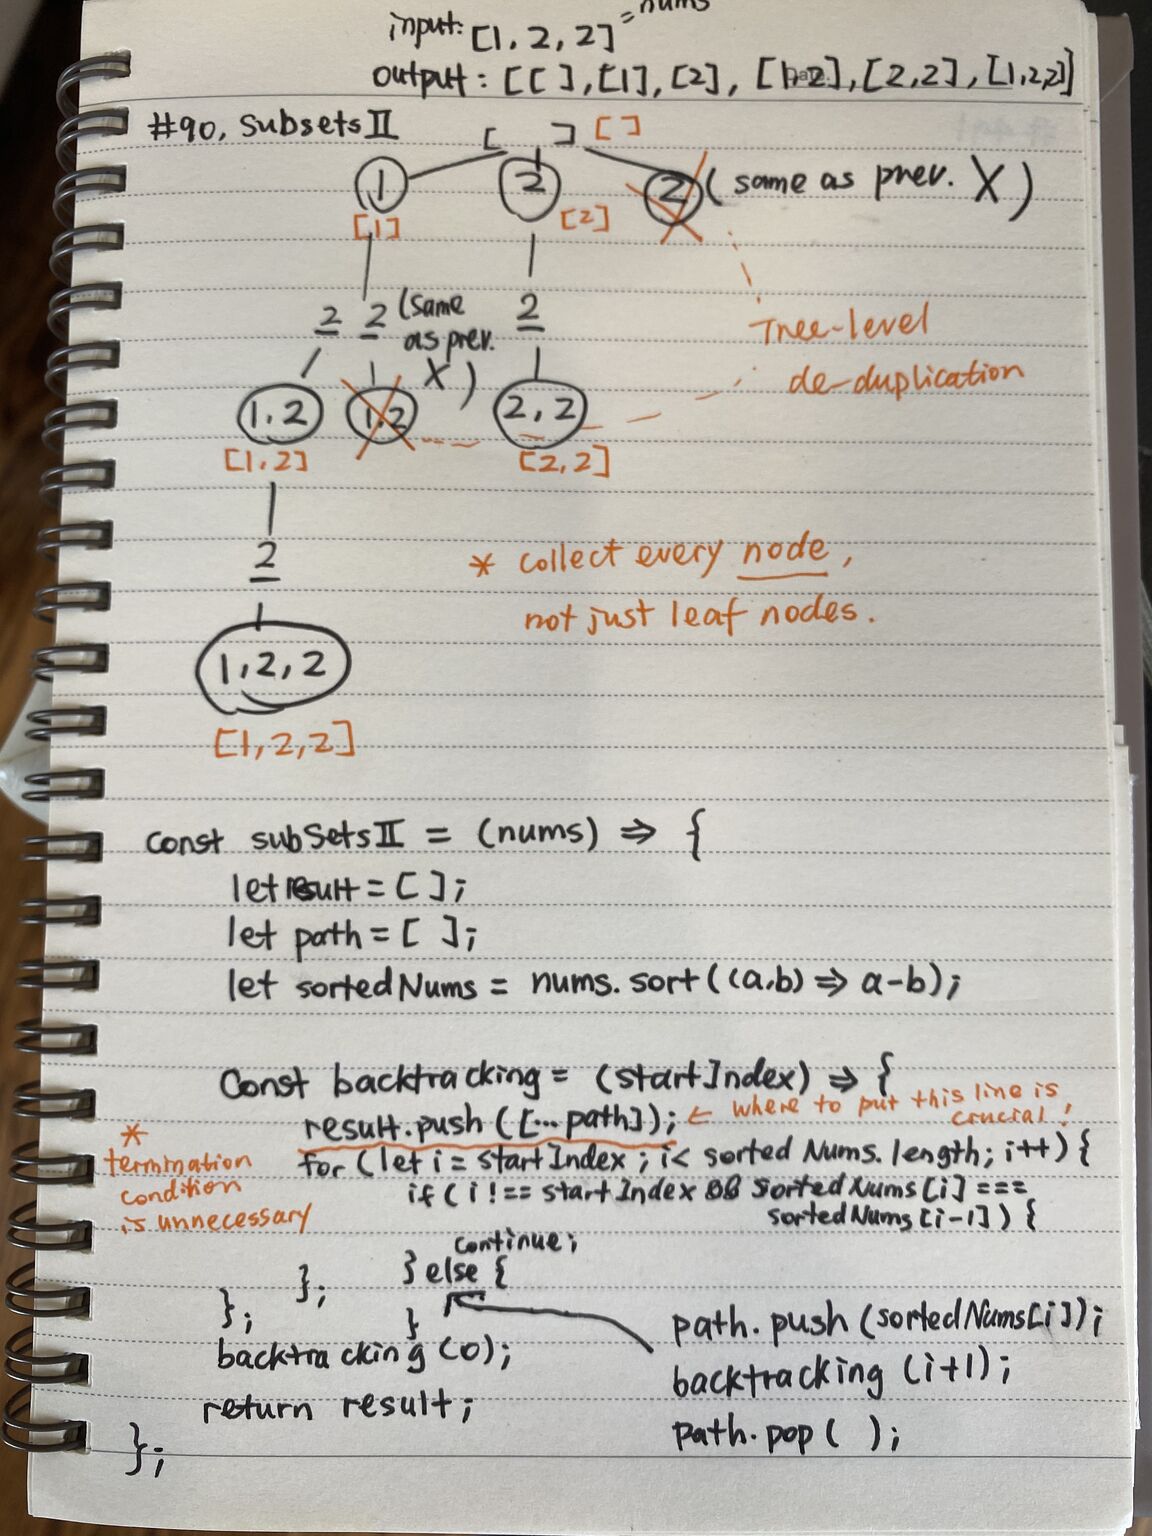 input: [1, 2, 2] = nums
output: [[ ], [1], [2], [1,2], [2,2], [1,2,2]]
#90, Subsets II
[ ] [ ]
1 2 2 (same as prev. X)
[1] [2]
2 2 (same as prev. X) 2
Tree-level
de-duplication
1,2 1,2 2,2
[1,2] [2,2]
2
* collect every node,
not just leaf nodes.
1,2,2
[1,2,2]
const subSetsII = (nums) => {
let result = [ ];
let path = [ ];
let sortedNums = nums.sort((a,b) => a-b);
const backtracking = (startIndex) => {
result.push([...path]); ← where to put this line is crucial!
* termination condition is unnecessary
for (let i = startIndex; i < sortedNums.length; i++) {
if (i !== startIndex && sortedNums[i] ===
sortedNums[i-1]) {
continue;
} else {
path.push(sortedNums[i]);
backtracking(i+1);
path.pop( );
}
};
};
backtracking(0);
return result;
};